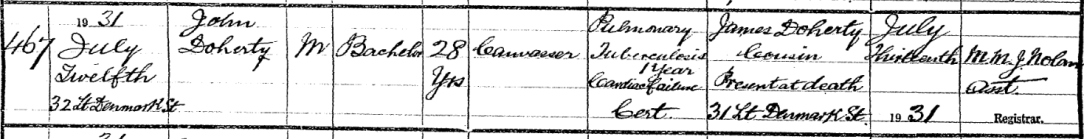 467
1931
July
Twelfth
32 Lt Denmark St
John
Doherty
M
Bachelor
28
Yrs
Canvasser
Pulmonary
Tuberculosis
1 Year
Cardiac failure
Cert.
James Doherty
Cousin
Present at death
31 Lt Denmark St.
July
Thirteenth
1931
M. M. J. Nolan
Asst.
Registrar.